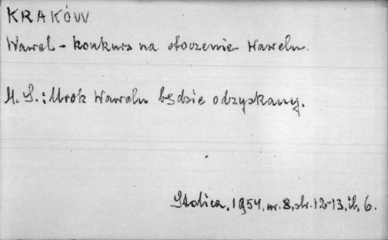 KRAKÓW
Wawel - konkurs na otoczenie Wawelu.
H. S.: Urok Wawelu będzie odzyskany.
Stolica, 1954, nr. 8, str. 12-13, il. 6.